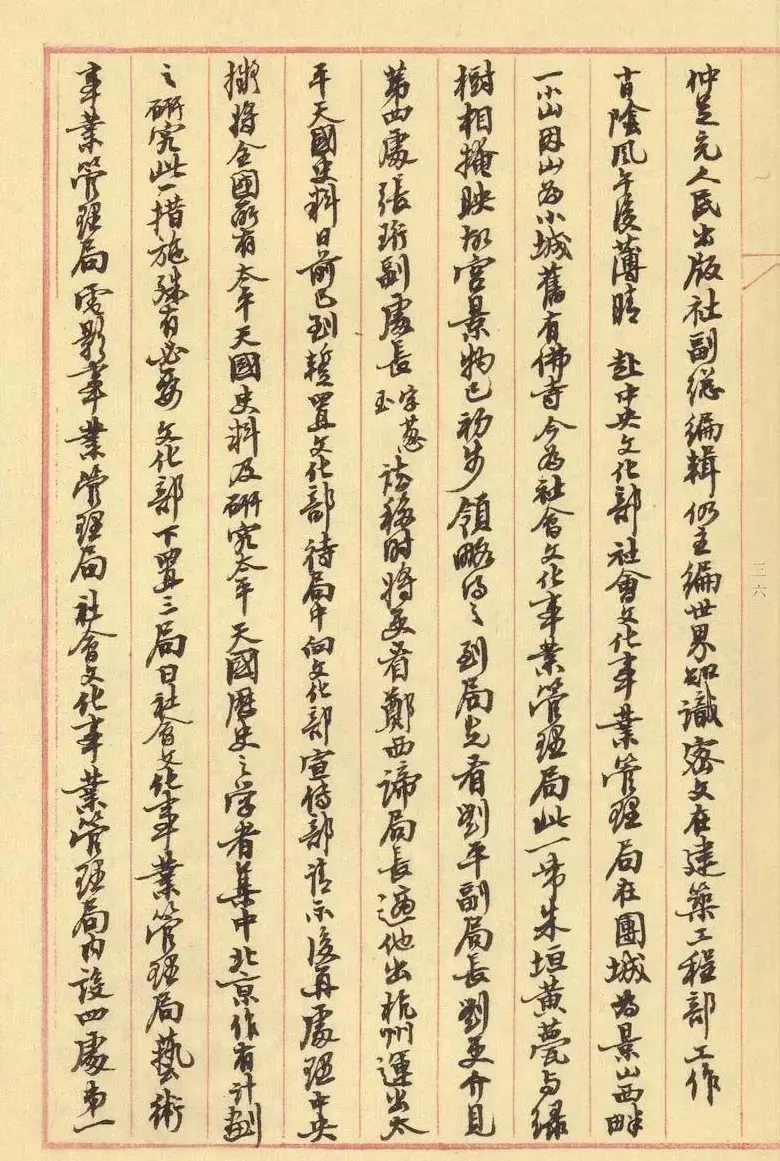 仲足充人民出版社副總編輯仍主編世界知識密文在建築工程部工作
十日陰風午後薄晴 赴中央文化部社會文化事業管理局在團城為景山西畔
一小山因山為小城舊有佛寺今為社會文化事業管理局此一帶朱垣黃甍與綠
樹相掩映故宮景物已初步領略得之到局先看劉平副局長劉更介見
第四處張珩副處長字蔥玉談移時將並看鄭西諦局長適他出杭州運出太
平天國史料日前已到暫置文化部待局中向文化部宣傳部請示後再處理中央
擬將全國所有太平天國史料及研究太平天國歷史之學者集中北京作有計劃
之研究此一措施殊有必要 文化部下置三局曰社會文化事業管理局藝術
事業管理局電影事業管理局社會文化事業管理局內設四處第一
三六